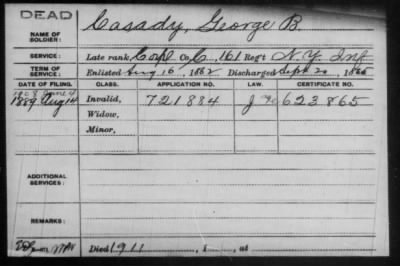 DEAD
NAME OF SOLDIER: Casady, George B.
SERVICE: Late rank, Corpl Co. C, 161 Reg't N.Y. Inf
TERM OF SERVICE: Enlisted Aug 16, 1862 Discharged Sept 20, 186
DATE OF FILING. CLASS. APPLICATION NO. LAW. CERTIFICATE NO.
1908 June 4
1889 Aug 14 Invalid, 721884 623865
Widow,
Minor,
ADDITIONAL SERVICES:
REMARKS:
Died 1911, 1 , at